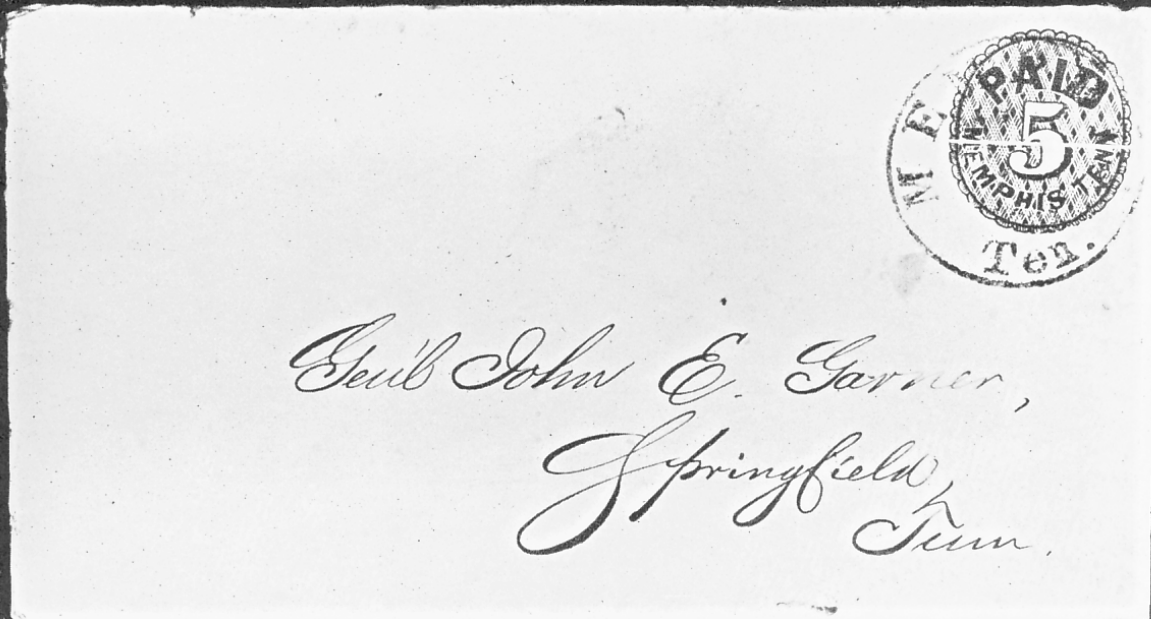 PAID
5
MEMPHIS, TENN
M E
Ten.
Genl John E. Garner,
Springfield,
Tenn.